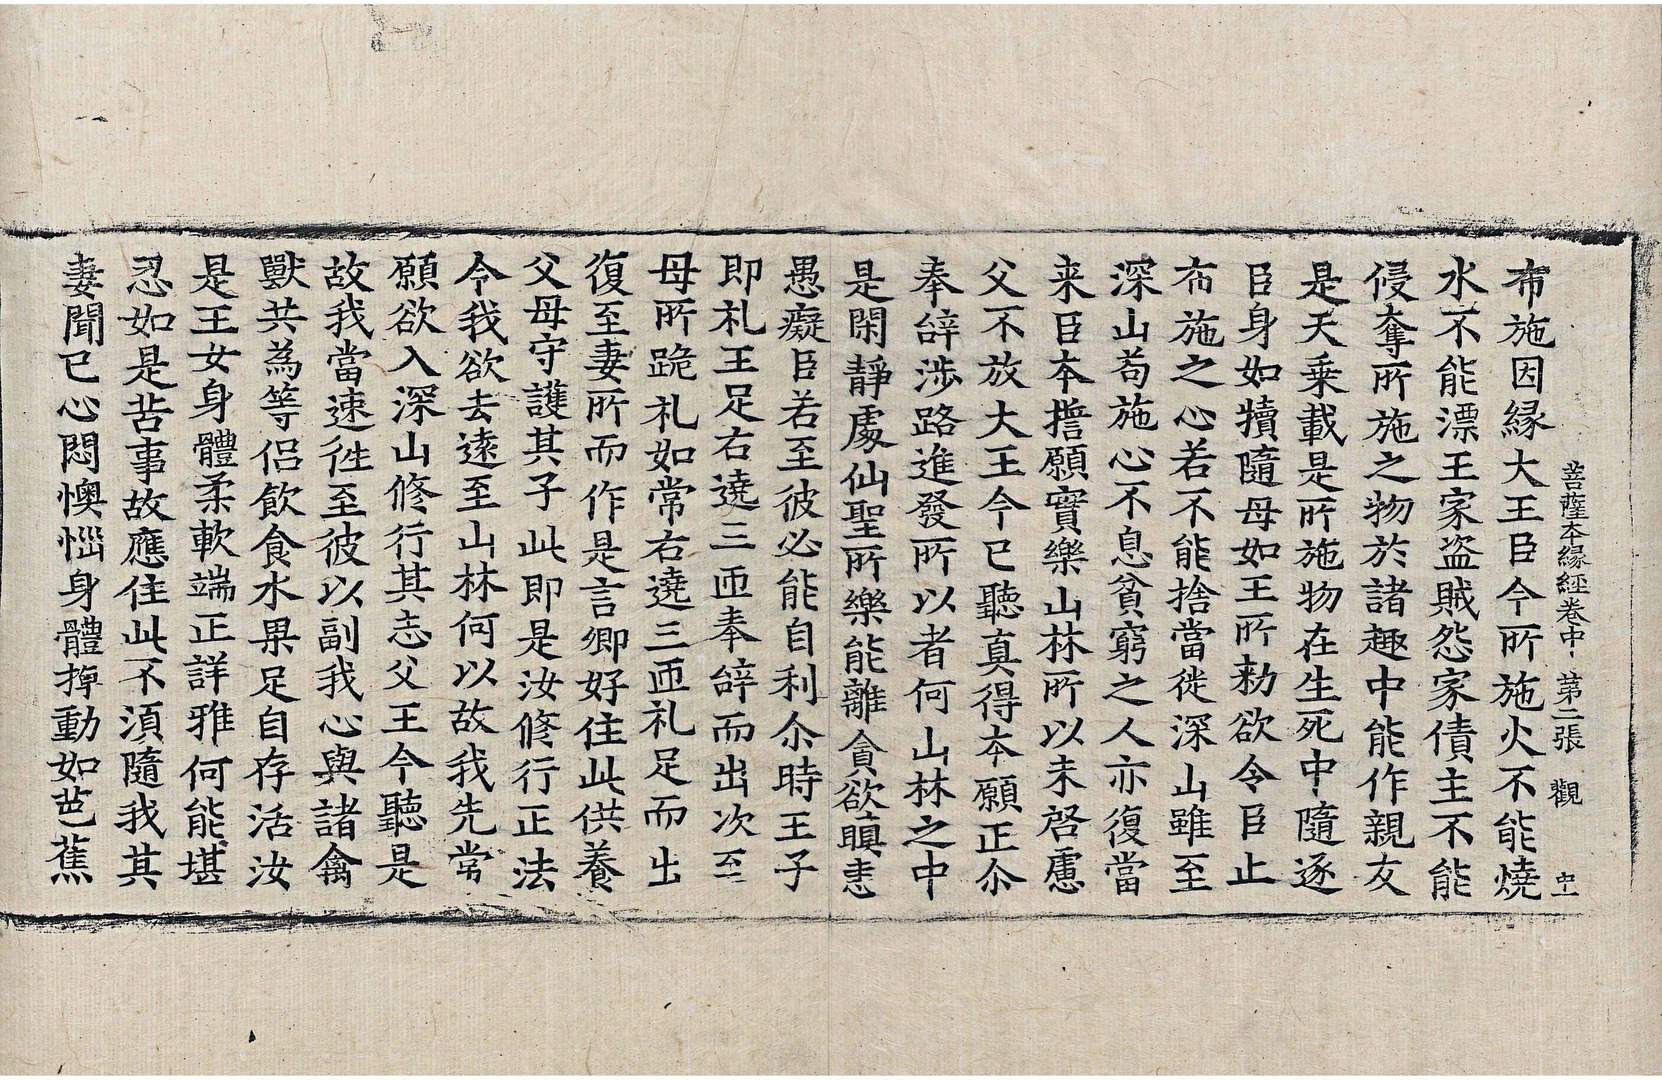 菩薩本縁經卷中 第二張 觀
布施因縁大王臣今所施火不能燒
水不能漂王家盗賊怨家債主不能
侵奪所施之物於諸趣中能作親友
是天乗載是所施物在生死中隨逐
臣身如犢隨母如王所勑欲令臣止
布施之心若不能捨當徙深山雖至
深山苟施心不息貧窮之人亦復當
来臣本擔願實樂山林所以未啓慮
父不放大王今已聽真得本願正尒
奉辝涉路進發所以者何山林之中
是閑靜處仙聖所樂能離貪欲瞋恚
愚癡臣若至彼必能自利尒時王子
即礼王足右遶三匝奉辝而出次至
母所跪礼如常右遶三匝礼足而出
復至妻所而作是言卿好住此供養
父母守護其子此即是汝修行正法
令我欲去遠至山林何以故我先常
願欲入深山修行其志父王今聽是
故我當速徃至彼以副我心與諸禽
獸共為等侣飲食水果足自存活汝
是王女身體柔軟端正詳雅何能堪
忍如是苦事故應住此不湏隨我其
妻聞已心悶懊惱身體掉動如芭蕉